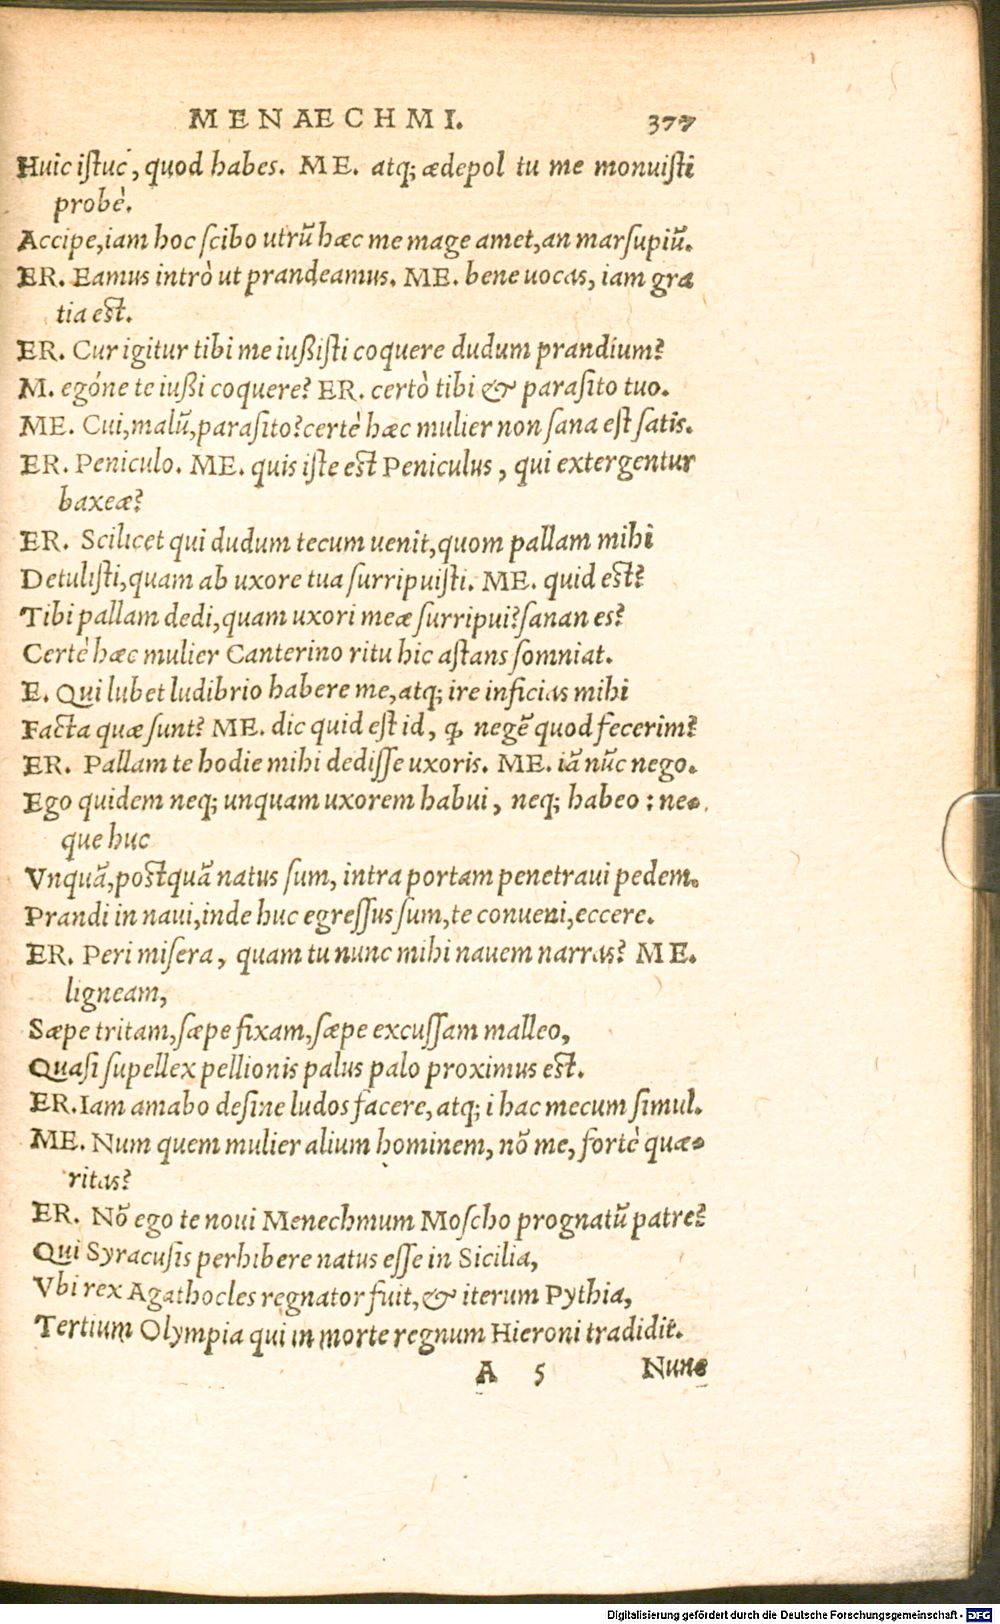 MENAECHMI. 377
Huic istuc, quod habes. ME. atq; ædepol tu me monuisti
probè.
Accipe, iam hoc scibo utrũ hæc me mage amet, an marsupiũ.
ER. Eamus intrò ut prandeamus. ME. bene uocas, iam gra
tia est.
ER. Cur igitur tibi me iußisti coquere dudum prandium?
M. egóne te iußi coquere? ER. certò tibi & parasito tuo.
ME. Cui, malũ, parasito? certè hæc mulier non sana est satis.
ER. Peniculo. ME. quis iste est Peniculus, qui extergentur
baxeæ?
ER. Scilicet qui dudum tecum uenit, quom pallam mihi
Detulisti, quam ab uxore tua surripuisti. ME. quid est?
Tibi pallam dedi, quam uxori meæ surripui? sanan es?
Certè hæc mulier Canterino ritu hic astans somniat.
E. Qui lubet ludibrio habere me, atq; ire inficias mihi
Facta quæ sunt? ME. dic quid est id, ꝙ negẽ quod fecerim?
ER. Pallam te hodie mihi dedisse uxoris. ME. iã nũc nego.
Ego quidem neq; unquam uxorem habui, neq; habeo: ne-
que huc
Vnquã, postquã natus sum, intra portam penetraui pedem.
Prandi in naui, inde huc egressus sum, te conueni, eccere.
ER. Peri misera, quam tu nunc mihi nauem narras? ME.
ligneam,
Sæpe tritam, sæpe fixam, sæpe excussam malleo,
Quasi supellex pellionis palus palo proximus est.
ER. Iam amabo desine ludos facere, atq; i hac mecum simul.
ME. Num quem mulier alium hominem, nõ me, fortè quæ-
ritas?
ER. Nõ ego te noui Menechmum Moscho prognatũ patre?
Qui Syracusis perhibere natus esse in Sicilia,
Vbi rex Agathocles regnator fuit, & iterum Pythia,
Tertium Olympia qui in morte regnum Hieroni tradidit.
A 5 Nunc
Digitalisierung gefördert durch die Deutsche Forschungsgemeinschaft - DFG